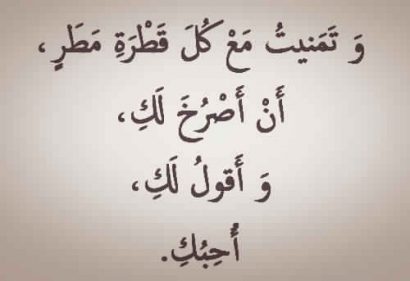 وَ تَمَنيتُ مَعْ كُلَ قَطْرَةِ مَطَرٍ ،
أَنْ أَصْرُخَ لَكِ،
وَ أَقولُ لَكِ،
أُحِبُكِ.